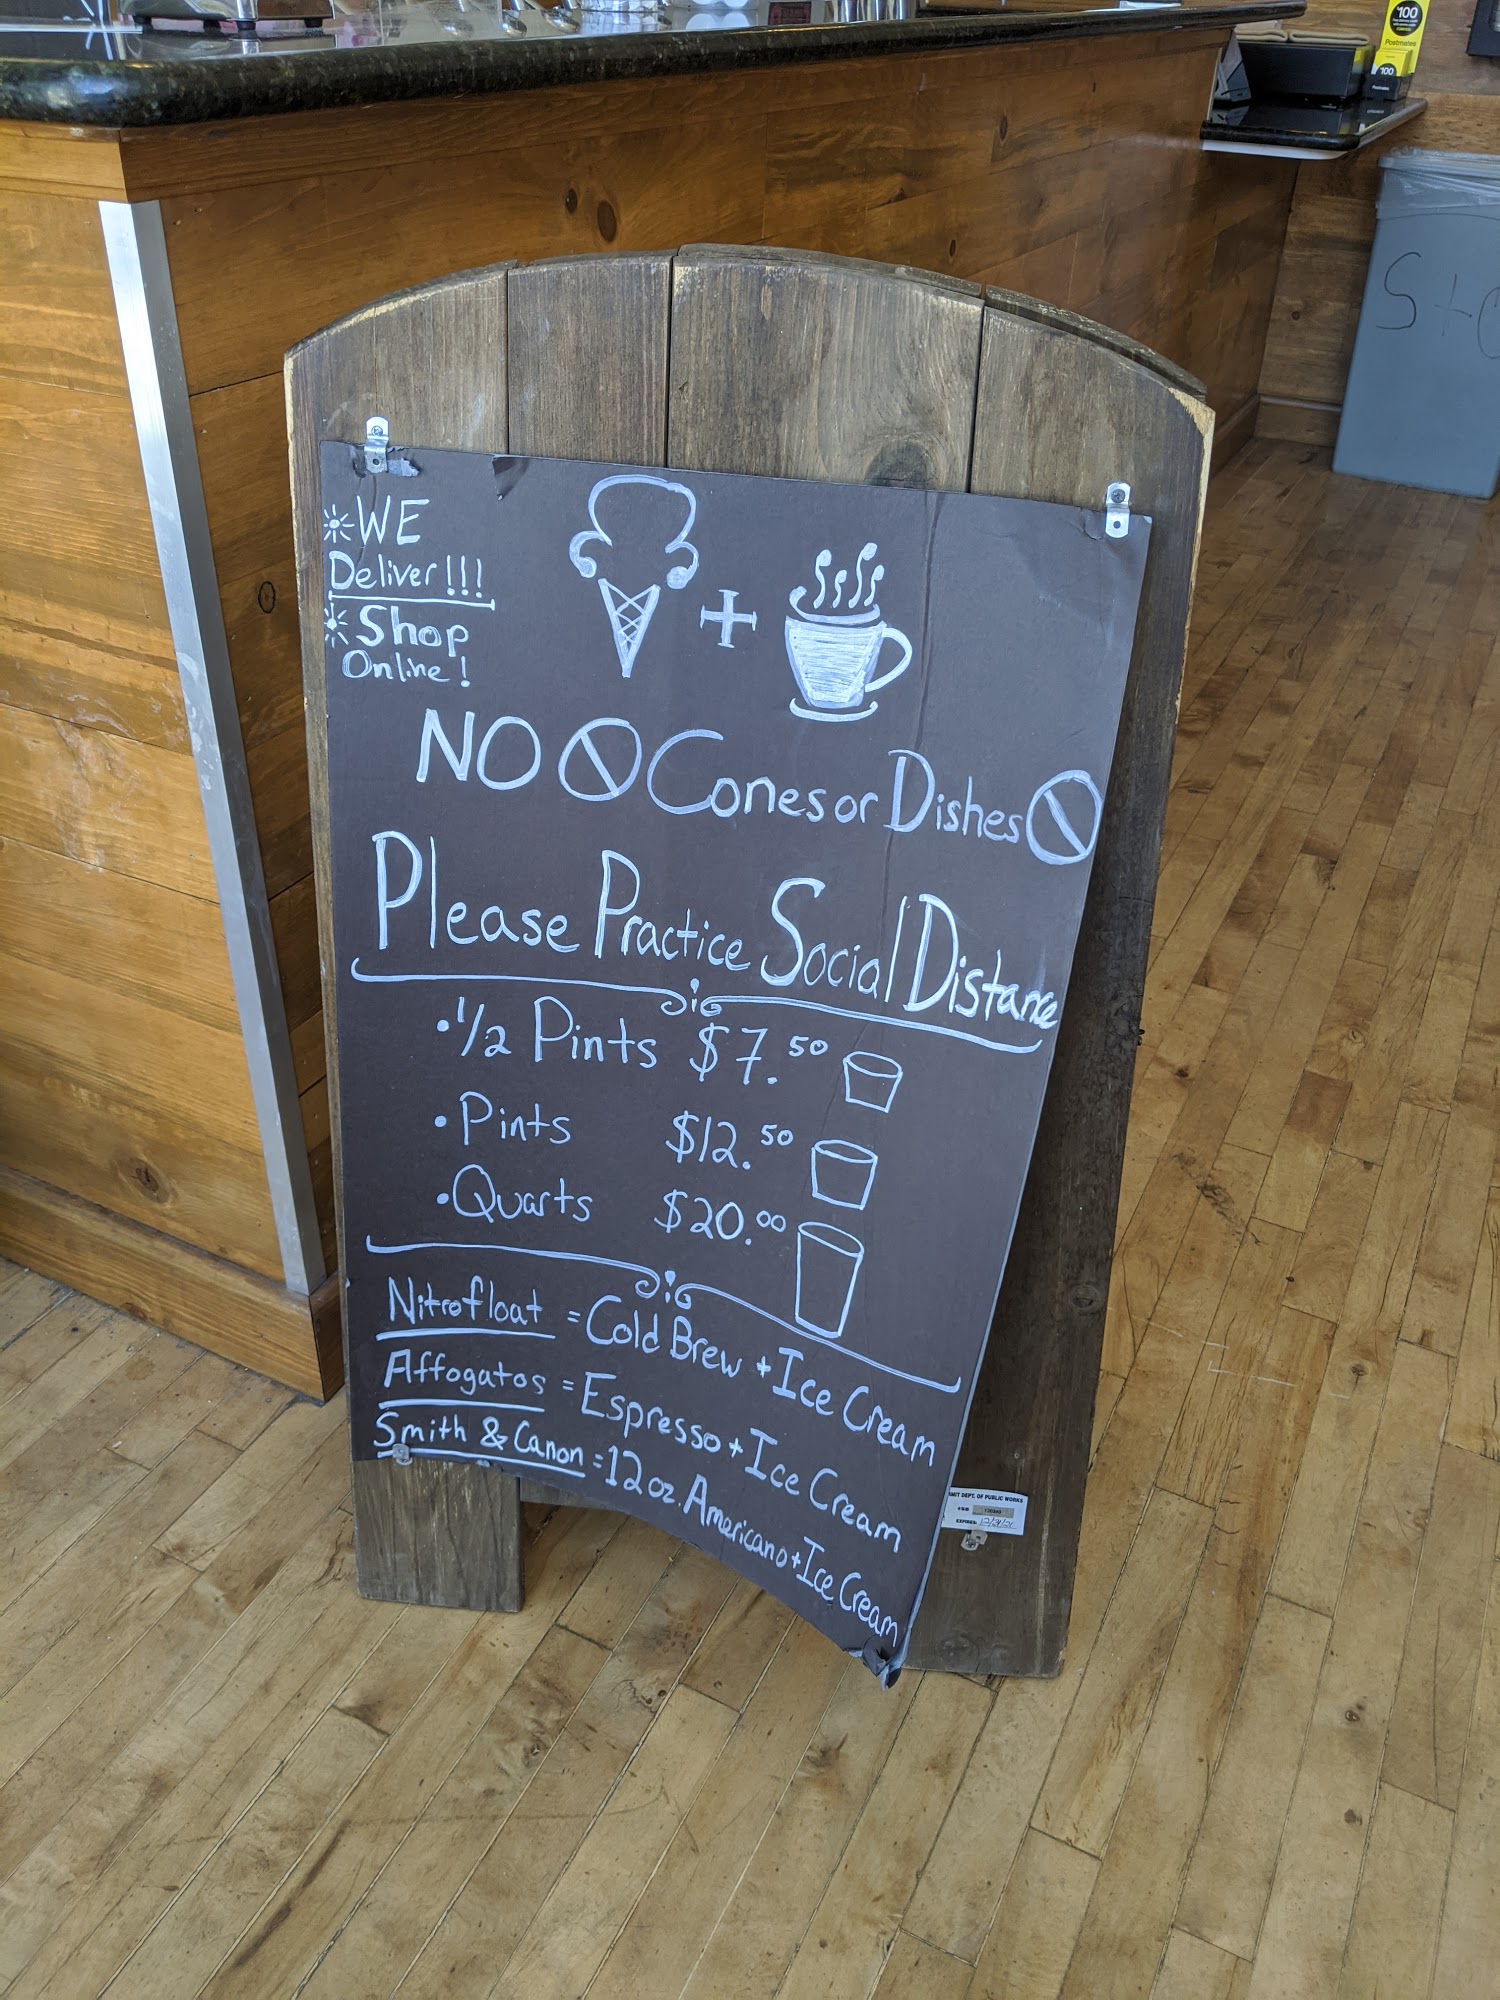 WE
Deliver!!!
Shop
Online!
+
NO Cones or Dishes
Please Practice Social Distance
• 1/2 Pints $7.50
• Pints $12.50
• Quarts $20.00
Nitrofloat = Cold Brew + Ice Cream
Affogatos = Espresso + Ice Cream
Smith & Canon = 12oz. Americano + Ice Cream
DEPT. OF PUBLIC WORKS
EXPIRES: 12/31/21
$100
Postmates
$100
Postmates
S+C